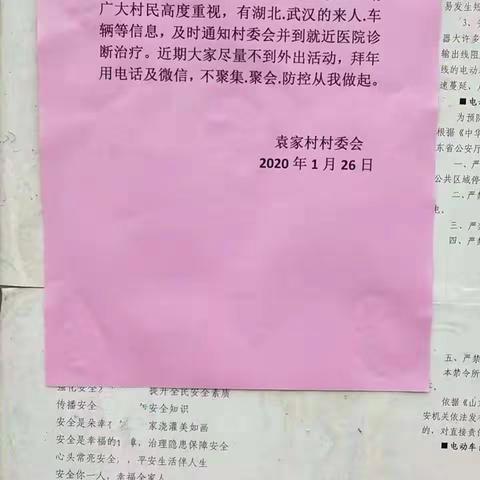 广大村民高度重视，有湖北.武汉的来人.车
辆等信息，及时通知村委会并到就近医院诊
断治疗。近期大家尽量不到外出活动，拜年
用电话及微信，不聚集.聚会.防控从我做起。
袁家村村委会
2020 年 1 月 26 日
易发生短
3、
器大许多
输出线阻
线的电动
速蔓延、
■电动
为预防
根据《中华
东省公安厅
一、严
公共区域停
二、严禁
电。
三、严禁
四、严禁
五、严禁
本禁令所
依据《山
安机关依法
的，对直接责
■电动车
强化安全 提升全民安全素质
传播安全 安全知识
安全是朵幸 家浇灌美如画
安全是幸福的 章，治理隐患保障安全
心头常亮安全 ，平安生活伴人生
安全你一人，幸福全家人